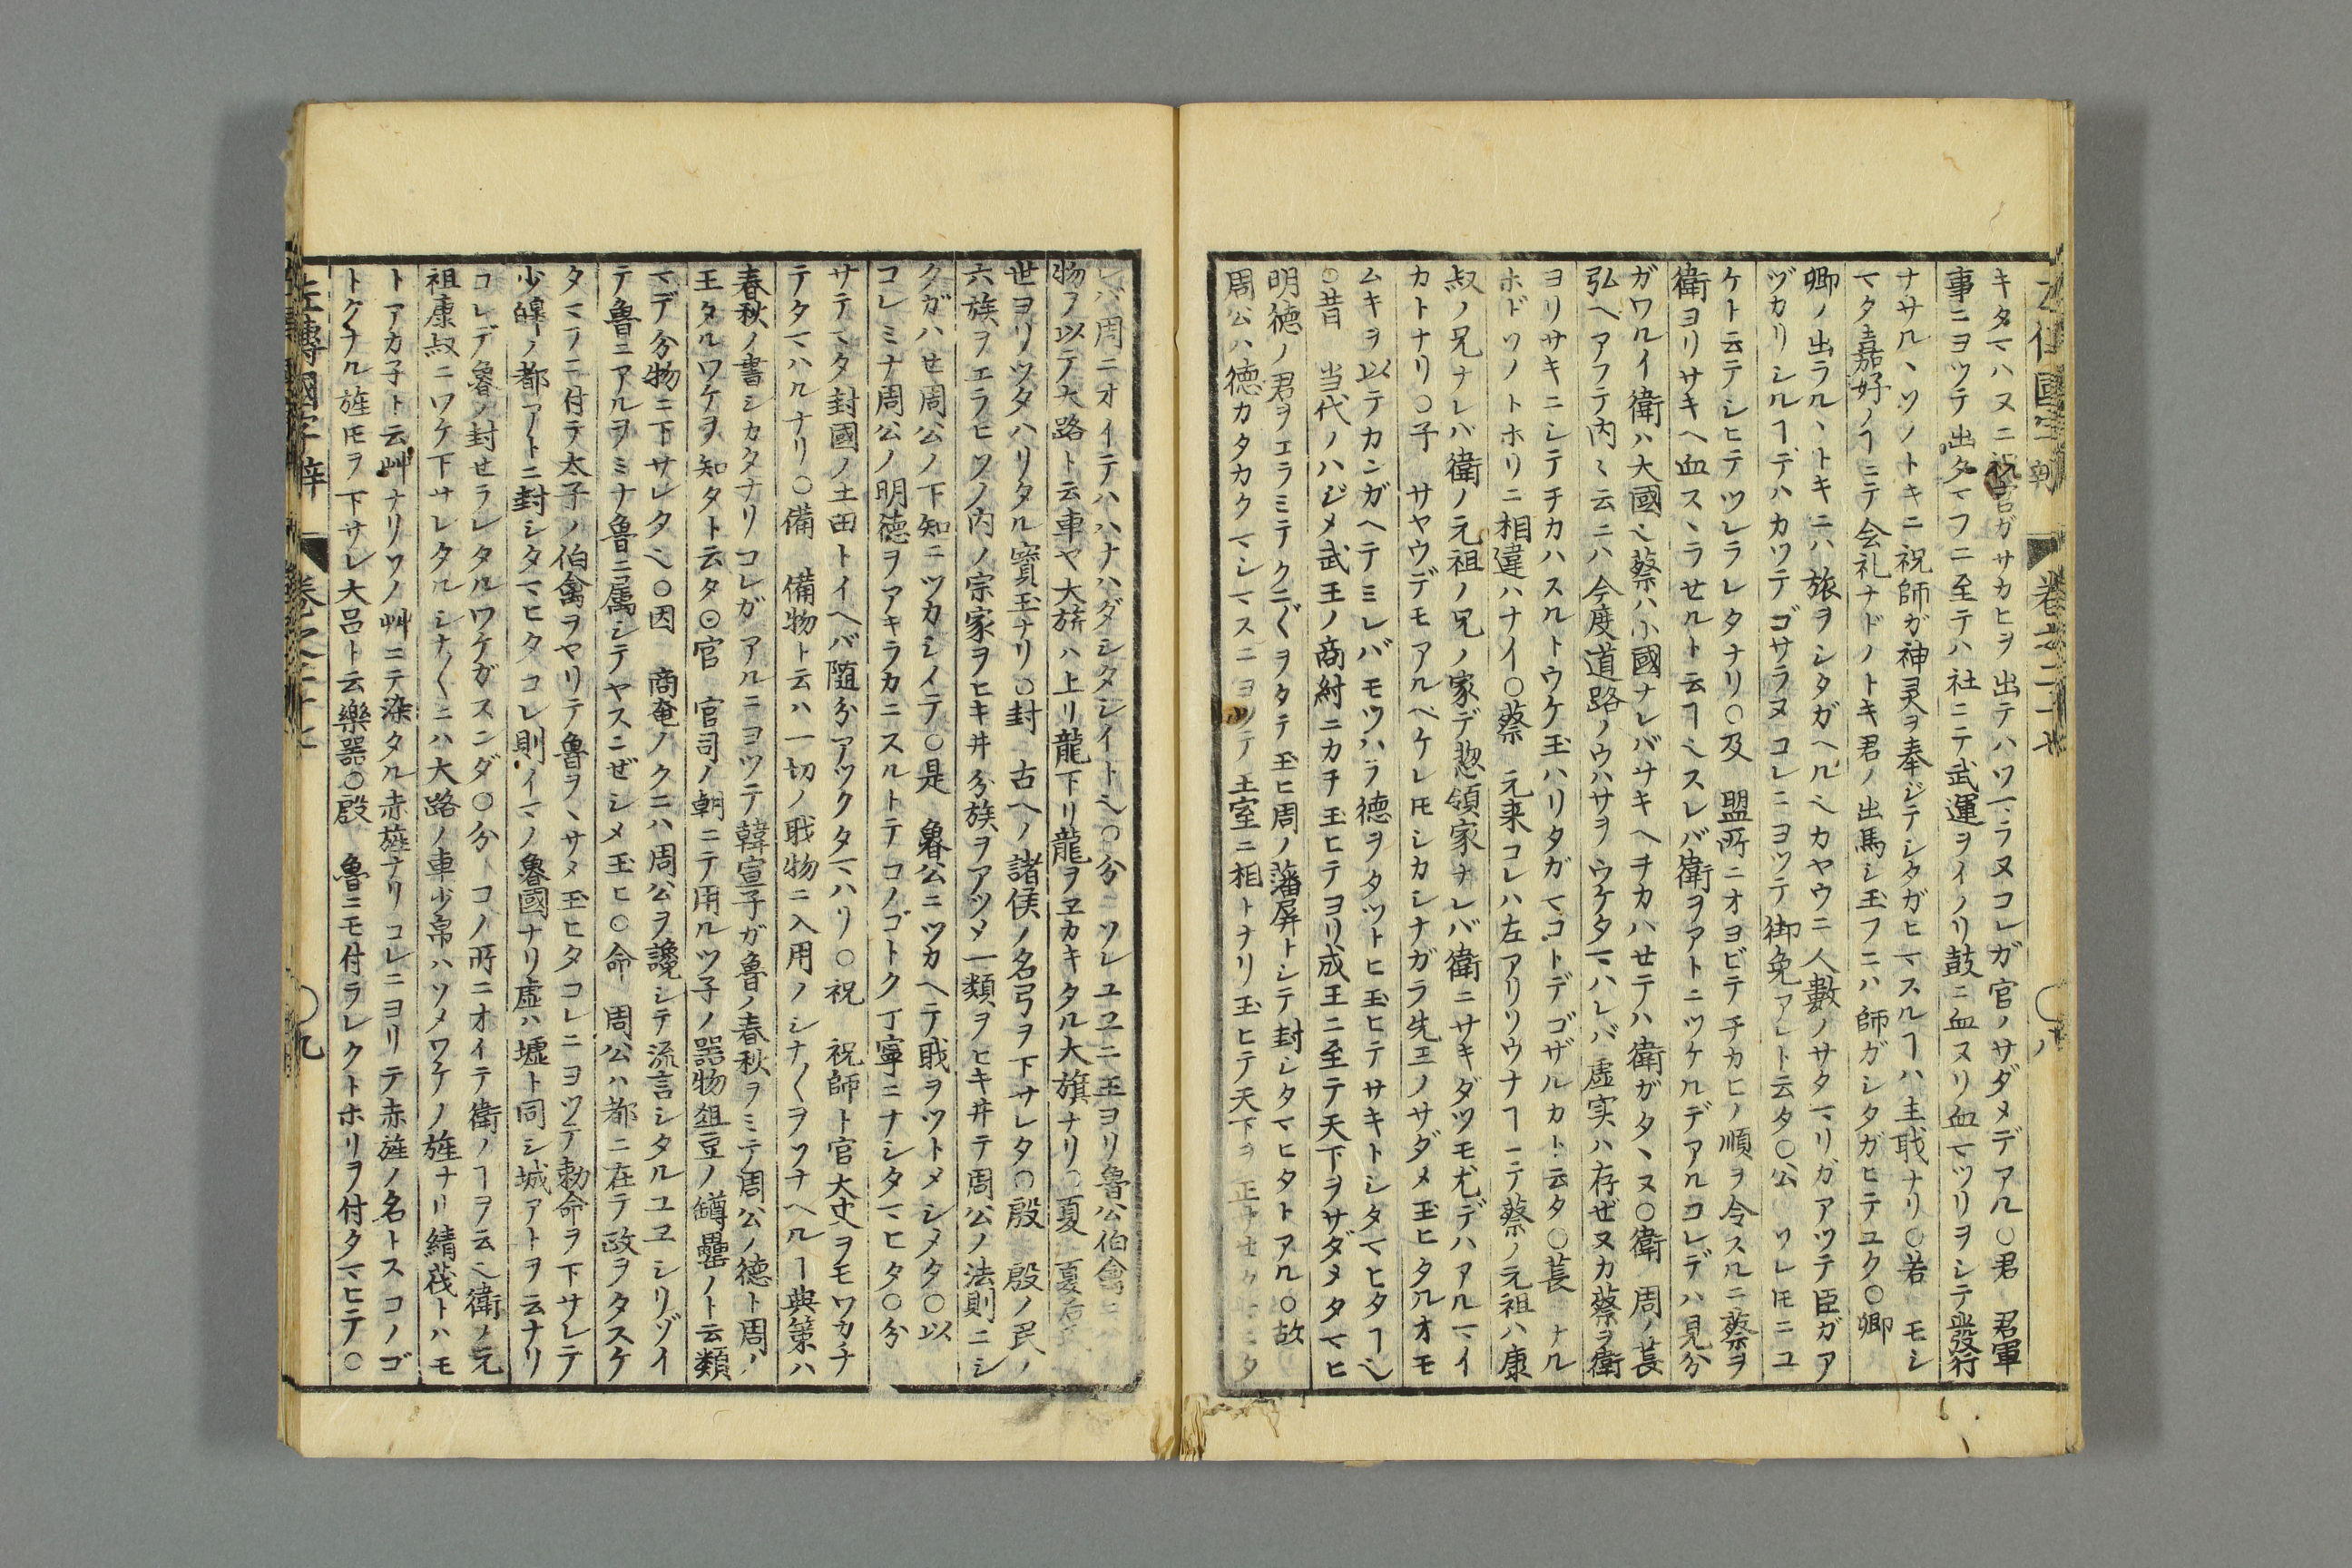 キタマハヌニ祝官ガサカヒヲ出テハワマラヌコレガ官ノサダメデアル○君 君軍
事ニヨツテ出タマフニ至テハ社ニテ武運ヲイノリ鼓ニ血ヌリ血マツリヲシテ發行
ナサルヽソノトキニ祝師ガ神灵ヲ奉ジテシタガヒマスルヿハ主戢ナリ○若 モシ
マタ嘉好ノヿニテ会礼ナドノトキ君ノ出馬シ玉フニハ師ガシタガヒテユク○卿
卿ノ出ラルヽトキニハ旅ヲシタガヘルヘカヤウニ人數ノサタマリガアツテ臣ガア
ヅカリシルヿデハカツテゴサラヌコレニヨツテ御免アレト云タ○公 ソレ𪜈ニユ
ケト云テシヒテツレラレタナリ○及 盟所ニオヨビテチカヒノ順ヲ令スルニ蔡ヲ
衛ヨリサキヘ血スヽラせルト云ヿヘスレバ衛ヲアトニツケルデアルコレデハ見分
ガワルイ衛ハ大國ヘ蔡ハ小國ナレバサキヘチカハせテハ衛ガタヽヌ○衛 周ノ萇
弘ヘアフテ内〻云ニハ今度道路ノウハサヲウケタマハレバ虚実ハ存ぜヌカ蔡ヲ衛
ヨリサキニシテチカハスルトウケ玉ハリタガマコトデゴザルカト云タ○萇 ナル
ホドソノトホリニ相違ハナイ○蔡 元来コレハ左アリソウナヿニテ蔡ノ元祖ハ康
叔ノ兄ナレバ衛ノ元祖ノ兄ノ家デ惣領家ナレバ衛ニサキダツモ尤デハアルマイ
カトナリ○子 サヤウデモアルベケレ𪜈シカシナガラ先王ノサダメ玉ヒタルオモ
ムキヲ以テカンガヘテミレバモツハラ德ヲタツトヒ玉ヒテサキトシタマヒタヿヘ
○昔 当代ノハジメ武王ノ商紂ニカチ玉ヒテヨリ成王ニ至テ天下ヲサダメタマヒ
明徳ノ君ヲエラミテクニ〲ヲタテ玉ヒ周ノ藩屏トシテ封シタマヒタトアル○故
周公ハ徳カタカクマシマスニヨツテ王室ニ相トナリ玉ヒテ天下ヲ正
レバ周ニオイテハハナハダシタシイトヘ○分 ソレユヱニ王ヨリ魯公伯禽ニ
物ヲ以テ大路ト云車ヤ大旂ハ上リ龍下リ龍ヲヱカキタル大旗ナリ○夏 夏后
世ヨリツタハリタル寳玉ナリ○封 古ヘノ諸侯ノ名弓ヲ下サレタ○殷 殷ノ民ノ
六族ヲエラヒソノ内ノ宗家ヲヒキ井分族ヲアツメ一類ヲヒキ井テ周公ノ法則ニシ
タガハせ周公ノ下知ニツカシイテ○是 魯公ニツカヘテ戢ヲツトメシメタ○以
コレミナ周公ノ明徳ヲアキラカニスルトテコノゴトク丁寧ニナシタマヒタ○分
サテマタ封國ノ土田トイヘバ隨分アツクタマハリ○祝 祝師ト官大史ヲモワカチ
テタマハルナリ○備 備物ト云ハ一切ノ戢物ニ入用ノシナ〳〵ヲソナヘルヿ典策ハ
春秋ノ書シカタナリコレガアルニヨツテ韓宣子ガ魯ノ春秋ヲミテ周公ノ徳ト周ノ
王タルワケヲ知タト云タ○官 官司ノ朝ニテ用ルツ子ノ器物俎豆ノ罇罍ノト云類
マデ分物ニ下サレタヘ○因 商奄ノクニハ周公ヲ讒シテ流言シタルユヱシリゾイ
テ魯ニアルヲミナ魯ニ属シテヤスニぜシメ玉ヒ○命 周公ハ都ニ在テ政ヲタスケ
タマフニ付テ太子ノ伯禽ヲヤリテ魯ヲヽサメ玉ヒタコレニヨツテ勅命ヲ下サレテ
少皥ノ都アトニ封シタマヒタコレ則イマノ魯國ナリ虚ハ墟ト同シ城アトヲ云ナリ
コレデ魯ノ封せラレタルワケガスンダ○分 コノ所ニオイテ衛ノヿヲ云ヘ衛ノ元
祖康叔ニワケ下サレタルシナ〳〵ニハ大路ノ車少帛ハソメワケノ旌ナリ綪茷トハモ
トアカ子ト云艸ナリソノ艸ニテ染タル赤旌ナリコレニヨリテ赤旌ノ名トスコノゴ
トクナル旌𪜈ヲ下サレ大呂ト云樂器○殷 魯ニモ付ラレクトホリヲ付タマヒテ○
左傳國字辯 卷之二十七 ○九